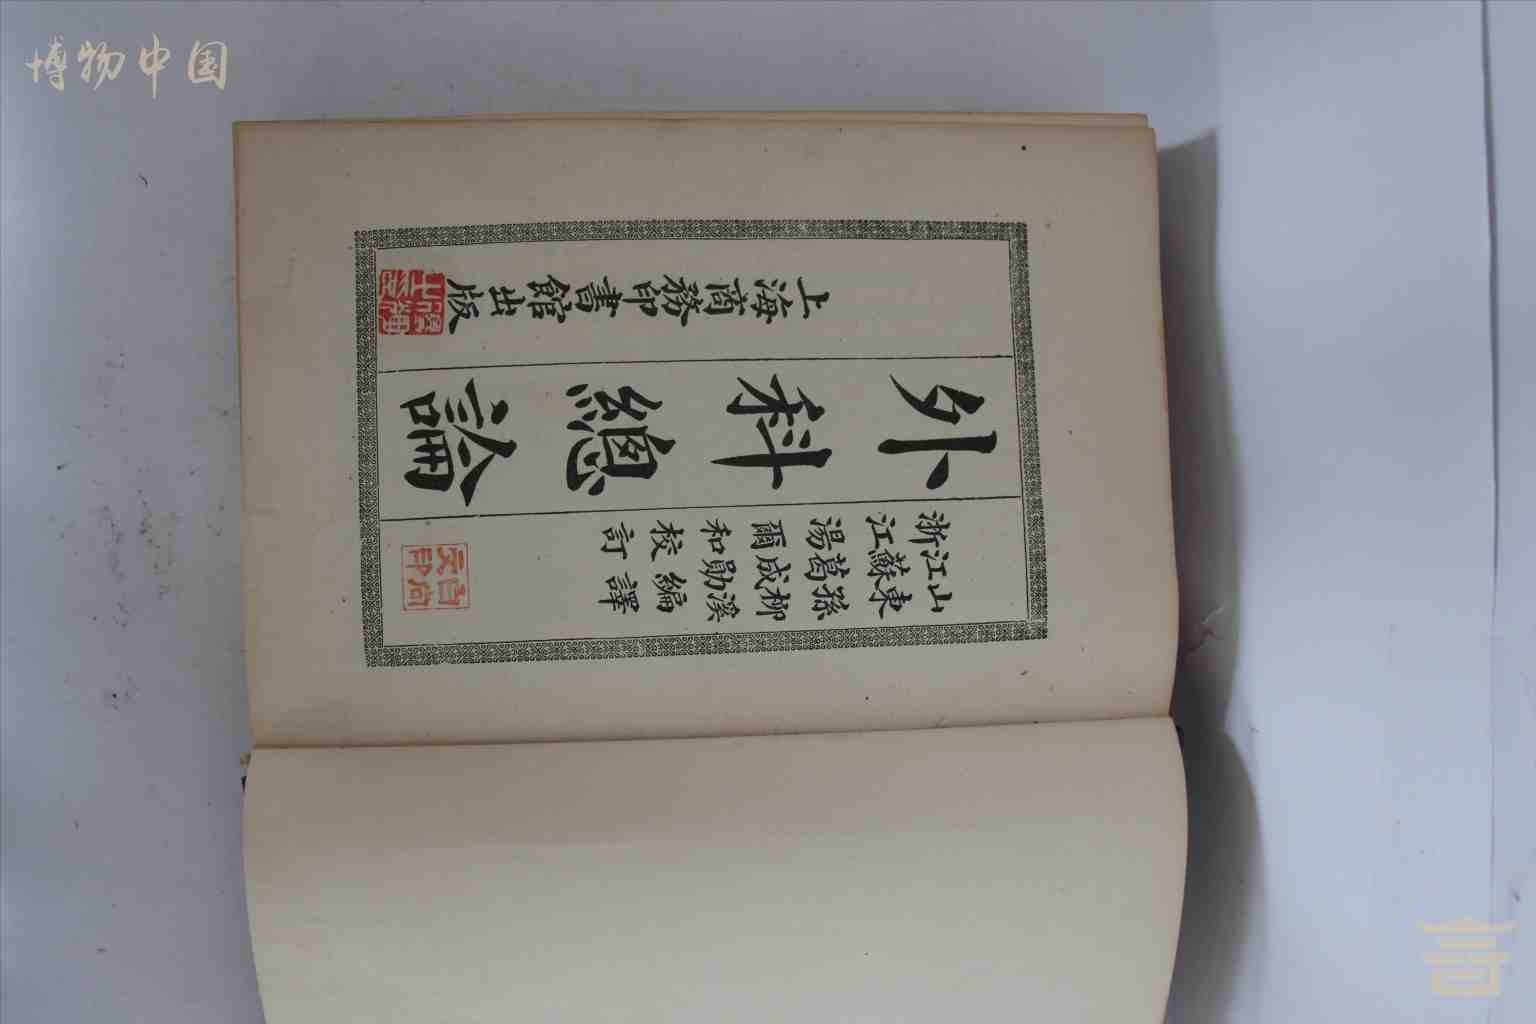 博物中国
山東孫柳溪編譯
江蘇葛成勛
浙江湯爾和校訂
外科總論
上海商務印書館出版
白尚文印